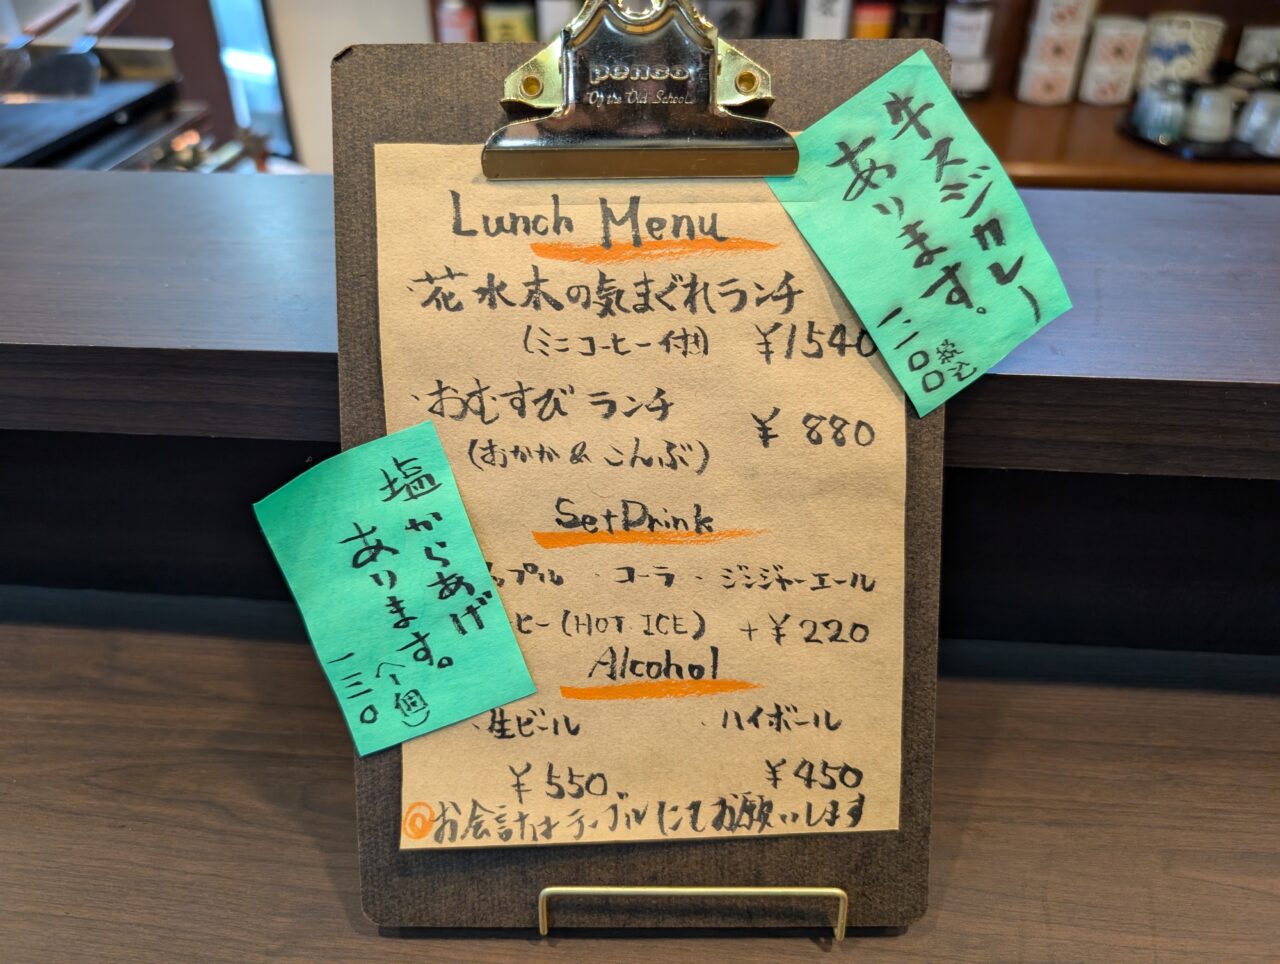 penco
Of the Old School
Lunch Menu
・花水木の気まぐれランチ
(ミニコーヒー付) ¥1540
・おむすびランチ
(おかか & こんぶ) ¥880
Set Drink
ップル ・コーラ ・ジンジャーエール
ヒー (HOT ICE) +¥220
Alcohol
・生ビール ・ハイボール
¥550 ¥450
◎お会計はテーブルにてお願いします
牛スジカレー
あります。
一二〇〇
税込
塩からあげ
あります。
(1個)
一三〇